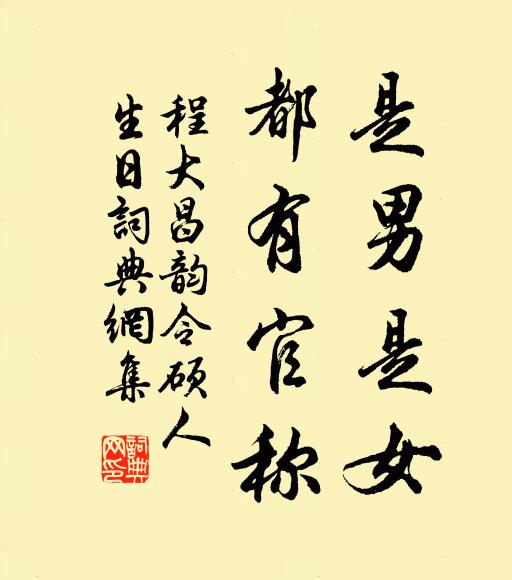 是男是女
都有官称
程大昌韵令硕人
生日詞典網集
詞典网印